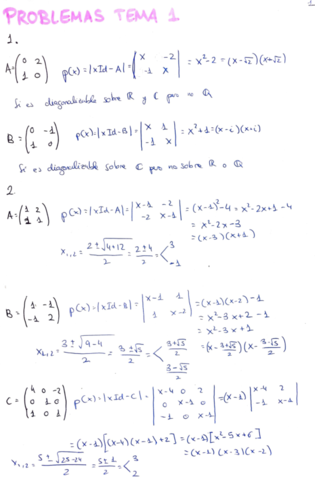 1
PROBLEMAS TEMA 1
1.
A = (0 2; 1 0) p(x) = |xId-A| = |x -2; -1 x| = x² - 2 = (x-√2)(x+√2)
Si es diagonalizable sobre ℝ y ℂ pero no ℚ
B = (0 -1; 1 0) p(x) = |xId-B| = |x 1; -1 x| = x² + 1 = (x-i)(x+i)
Si es diagonalizable sobre ℂ pero no sobre ℝ o ℚ
2.
A = (1 2; 2 1) p(x) = |xId-A| = |x-1 -2; -2 x-1| = (x-1)² - 4 = x² - 2x + 1 - 4
= x² - 2x - 3
= (x-3)(x+1)
x₁,₂ = (2 ± √4+12)/2 = (2 ± 4)/2 = < 3 -1
B = (1 -1; -1 2) p(x) = |xId-B| = |x-1 1; 1 x-2| = (x-1)(x-2) - 1
= x² - 3x + 2 - 1
= x² - 3x + 1
x₁,₂ = (3 ± √9-4)/2 = (3 ± √5)/2 = < (3+√5)/2 (3-√5)/2
= (x - (3+√5)/2)(x - (3-√5)/2)
C = (4 0 -2; 0 1 0; 1 0 1) p(x) = |xId-C| = |x-4 0 2; 0 x-1 0; -1 0 x-1| = (x-1) |x-4 2; -1 x-1|
= (x-1)[(x-4)(x-1)+2] = (x-1)[x² - 5x + 6]
x₁,₂ = (5 ± √25-24)/2 = (5 ± 1)/2 = < 3 2
= (x-1)(x-3)(x-2)